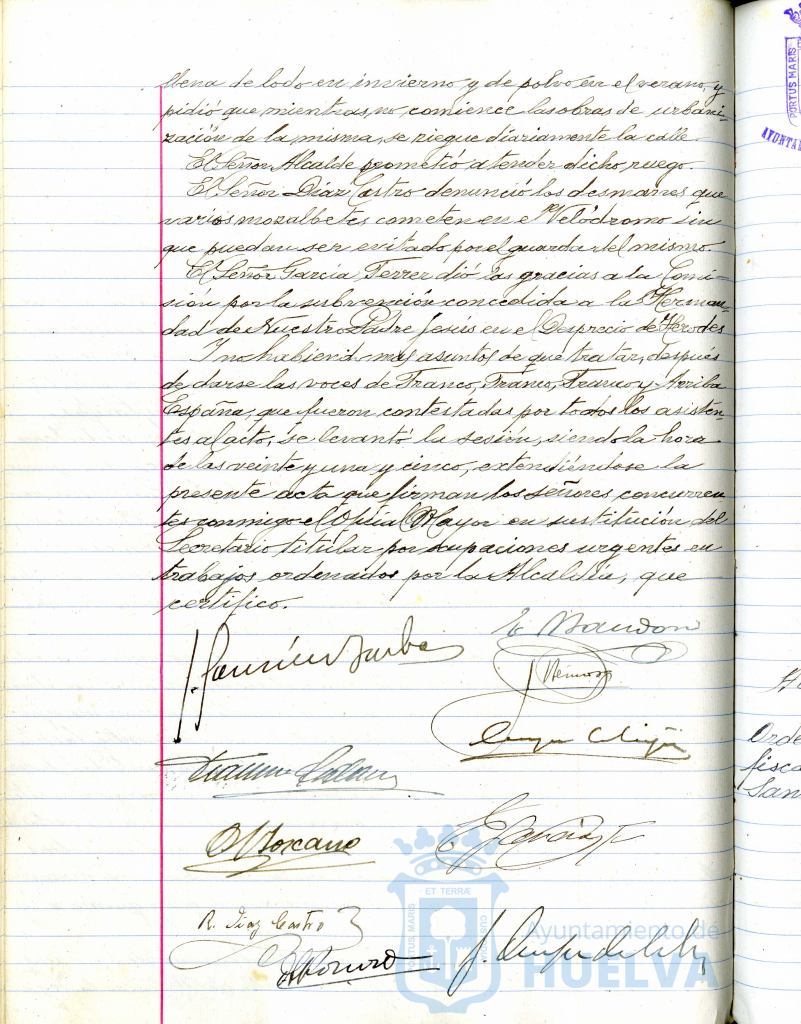 llena de lodo en invierno y de polvo en el verano, y
pidió que mientras no comience las obras de urbani-
zación de la misma, se riegue diariamente la calle.
El Señor Alcalde prometió atender dicho ruego.
El Señor Díaz Castro denunció los desmanes que
varios mozalbetes cometen en el Velódromo sin
que puedan ser evitado por el guarda del mismo.
El Señor García Ferrer dió las gracias a la Comi-
sión por la subvención concedida a la Herman-
dad de Nuestro Padre Jesús en el Desprecio de Herodes
Y no habiendo mas asuntos de que tratar, después
de darse las voces de Franco, Franco, Franco y Arriba
España, que fueron contestadas por todos los asisten-
tes al acto, se levantó la sesión, siendo la hora
de las veinte y una y cinco, extendiéndose la
presente acta que firman los señores concurren
tes conmigo el Oficial Mayor en sustitución del
Secretario titular por ocupaciones urgentes en
trabajos ordenados por la Alcaldía, que
certifico.
R. Díaz Castro
ET TERRÆ
PORTUS MARIS
CUSTODIA
Ayuntamiento de
HUELVA
PORTUS MARIS
AYUNTA
Orde
fisca
San